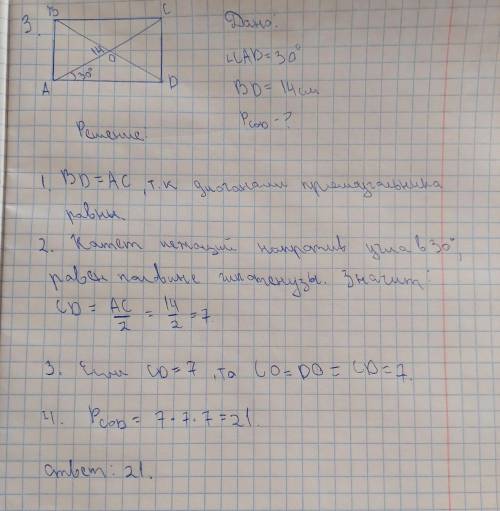 3.
B C
14
O
30°
A D
Дано:
∠CAD=30°
BD=14см
P_COD-?
Решение:
1. BD=AC, т.к диогонали прямоугальника
равны.
2. Катет лежащий напротив угла в 30°,
равен половине гипотенузы. Значит:
CD = AC/2 = 14/2 = 7
3. Если CD=7, то CO=DO=CD=7.
4. P_COD= 7·7·7=21.
Ответ: 21.